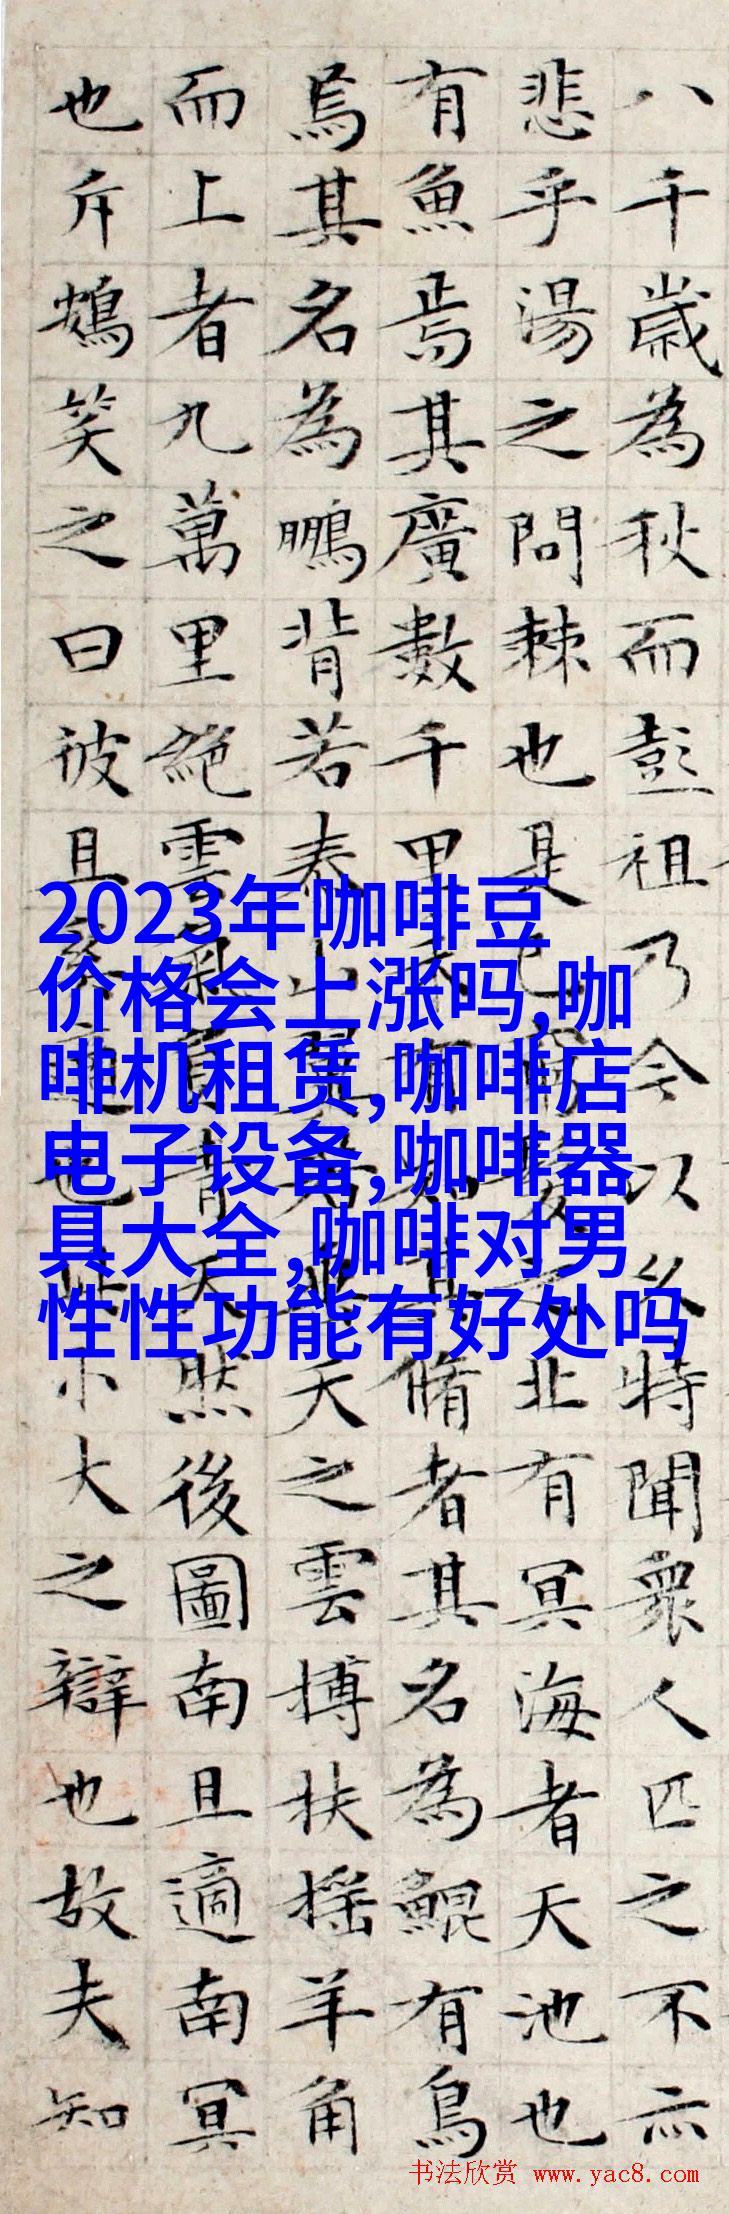 八千歲為秋而彭祖乃今以久特聞眾人匹之不亦
悲乎湯之問棘也是已窮髮之北有冥海者天池也
有魚焉其廣數千里未有知其脩者其名為鯤有鳥
焉其名為鵬背若泰山翼若垂天之雲搏扶搖羊角
而上者九萬里絕雲氣負青天然後圖南且適南冥
也斥鴳笑之曰彼且奚適也此小大之辯也故夫知
2023年咖啡豆
价格会上涨吗,咖
啡机租赁,咖啡店
电子设备,咖啡器
具大全,咖啡对男
性性功能有好处吗
书法欣赏 www.yac8.com